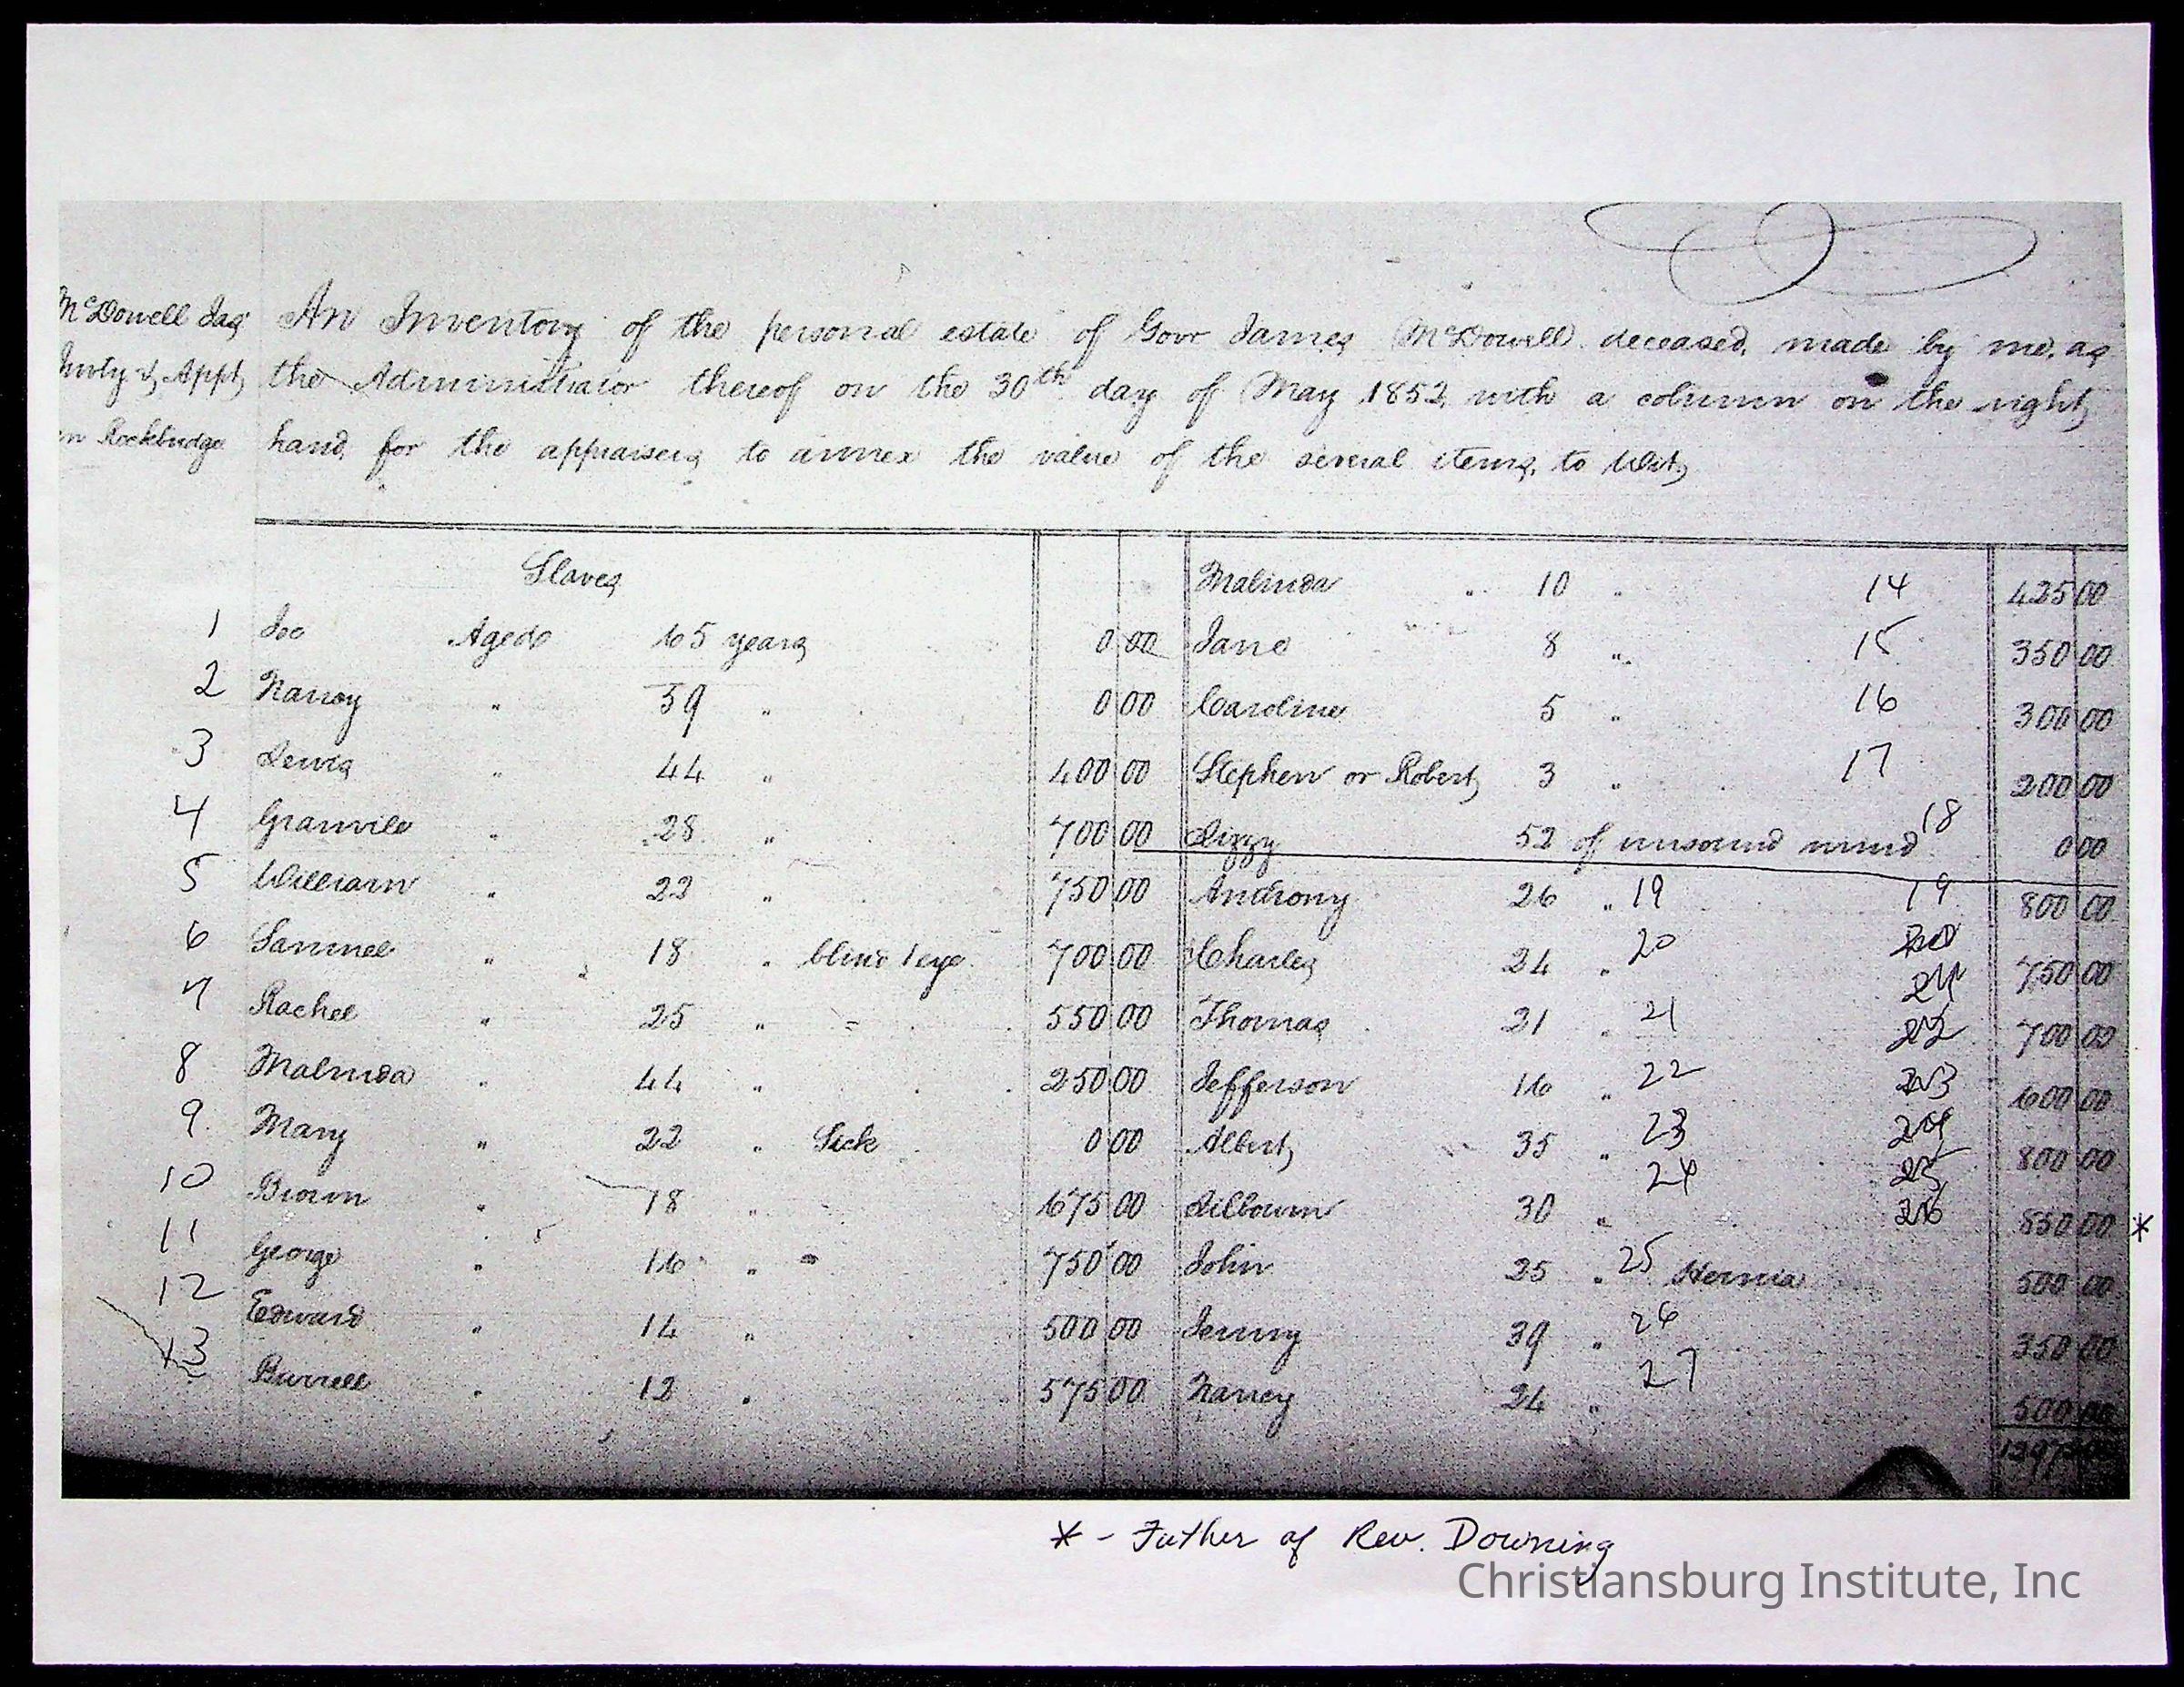 McDowell Jas An Inventory of the personal estate of Govr James McDowell deceased, made by me, as
& Appt the Administrator thereof on the 30th day of May 1852 with a column on the right
in Rockbridge hand for the appraisers to annex the value of the several items, to Wit,
Slaves
1 Joe Aged 65 years 0 00
2 Nancy " 59 " 0 00
3 Lewis " 44 " 400 00
4 Granvile " 28 " 700 00
5 William " 22 " 750 00
6 Samuel " 18 " blind 1 eye 700 00
7 Rachel " 25 " 550 00
8 Malinda " 44 " 250 00
9 Mary " 22 " Sick 0 00
10 18 " 675 00
11 George " 16 " 750 00
12 Edward " 14 " 500 00
13 Burrell " 12 " 575 00
Malinda " 10 " 14 425 00
Jane 8 " 15 350 00
Caroline 5 " 16 300 00
Stephen or Robert 3 " 17 200 00
Lizzy 52 of unsound mind 18 0 00
Anthony 26 " 19 19 800 00
Charles 24 " 20 20 750 00
Thomas 21 " 21 21 700 00
Jefferson 16 " 22 22 600 00
Albert 35 " 23 23 800 00
Lilbourn 30 " 24 24 850 00 *
John 25 " 25 Hernia 25 500 00
Jenny 39 " 26 26 350 00
Nancy 24 " 27 500 00
* - Father of Rev. Downing
Christiansburg Institute, Inc